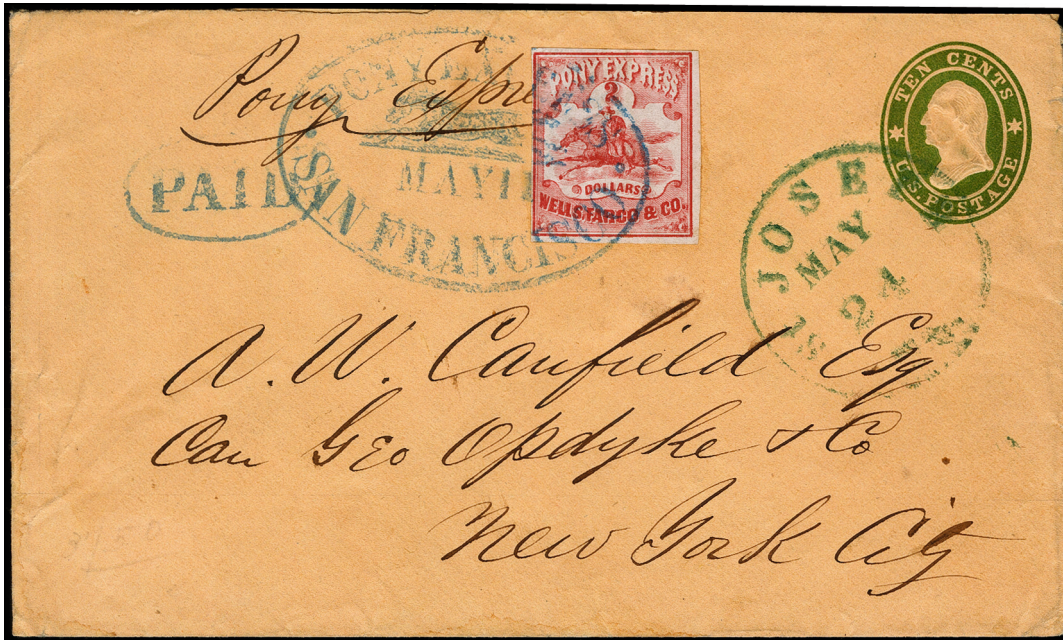 Pony Express
PAID
PONY
MAY 11
SAN FRANCISCO
PONY EXPRESS
2
DOLLARS
WELLS, FARGO & CO.
TEN CENTS
U.S. POSTAGE
JOSEPH
MAY
24
18
A. W. Canfield Esq
Care Geo Opdyke & Co
New York City